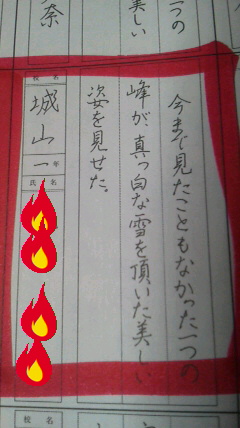 今まで見たこともなかった一つの
峰が、真っ白な雪を頂いた美しい
姿を見せた。
校名
城山
一年
氏名
一つの
美しい
奈
校名